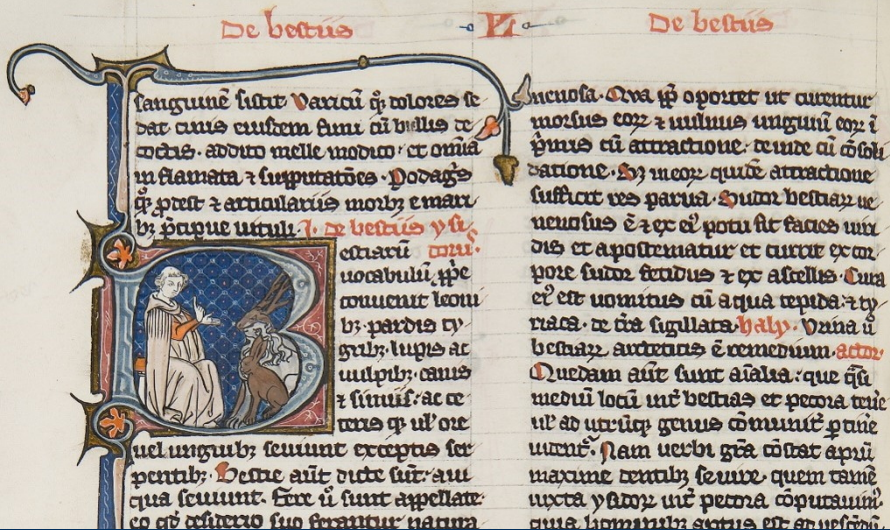 De bestiis
L
De bestiis
sanguinē sistit. Varicū qͦꝫ dolores se
dat cinis eiusdem fimi cū bullis de
coctis. addito melle modico. et omīa
inflamata ⁊ suppuratōes. Podagͥs
qͦꝫ ꝓdest ⁊ articulariis morbꝫ e mari
bꝫ p̄cipue uituli. I. de bestiis ysi
doruꝰ.
Bestiarū
uocabulū ꝓp̄e
conuenit leoni
bꝫ. pardis ty
gribꝫ. lupis ac
uulpibꝫ. canis
⁊ simiis. ac ce
teris q̄ ul' ore
uel unguibꝫ seuiunt exceptis ser
pentibꝫ. Bestie aūt dicte sūt. a ui
qua seuiunt. Fere ū sunt appellate.
eo qd' desiderio suo ferantur natura
nenosa. Qua ꝓp̄ oportet ut curentur
morsus eoꝝ ⁊ uulnus unguiū eoꝝ ī
p̄mis cū attractione. deinde cū cōsoli
datione. Sꝫ in eoꝝ quibꝰ attractione
sufficit res parua. Sudor bestiaꝝ ue
nenosus ē ⁊ ex eiꝰ potu fit facies uiri
dis et apostematur et currit ex cor
pore sudor fetidus ⁊ ex ascellis. Cura
eiꝰ est uomitus cū aqua tepida ⁊ ty
riaca. de t̄ra sigillata. haly. Vrina ū
bestiaꝝ arteticis ē remedium. actor
Quedam aūt sunt aīalia. que q̄si
mediū locū int̄ bestias et pecora tene
ul' ad utrūqꝫ genus cōmunit̄ ꝑtine
uidentᷣ. Nam uerbi gr̄a cōstat aprū
maxime dentibꝫ seuire. quem tamē
iuxta ysidoꝝ int̄ pecora cōputauimꝰ
quia hominibꝫ